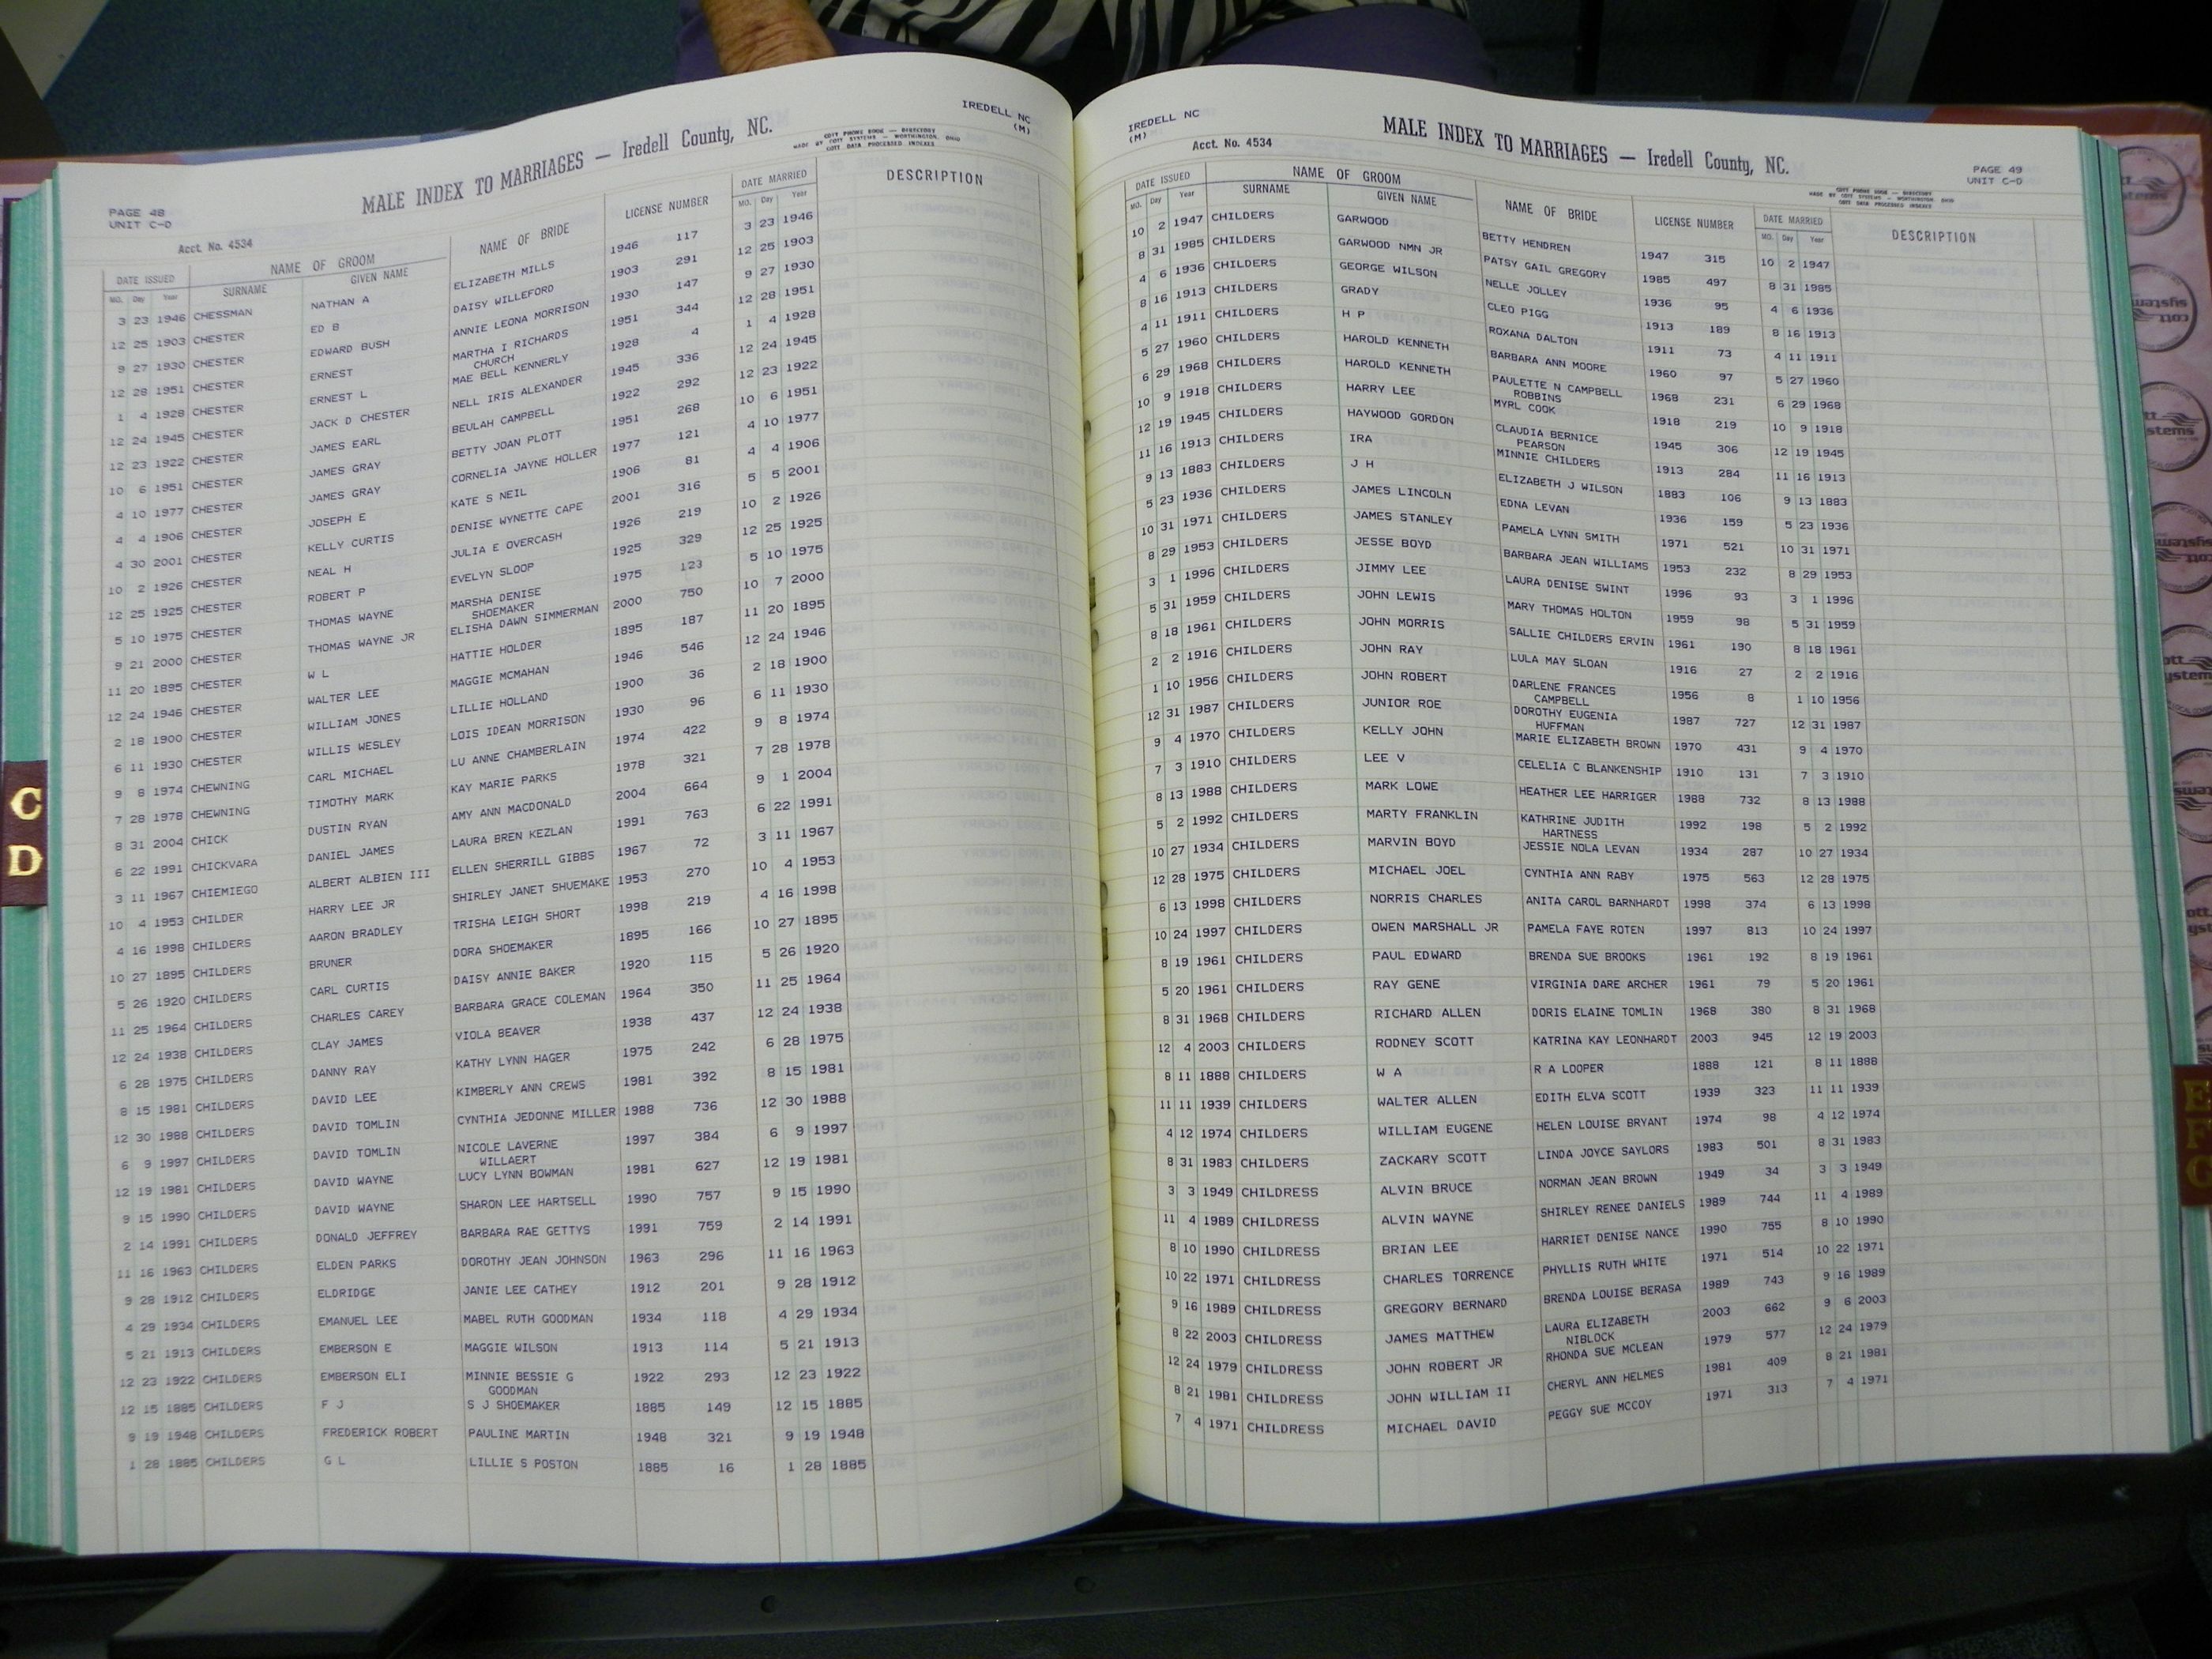 IREDELL NC
(M)
MALE INDEX TO MARRIAGES — Iredell County, NC.
COTT PHONE BOOK — DIRECTORY
MADE BY COTT SYSTEMS — WORTHINGTON, OHIO
COTT DATA PROCESSED INDEXES
PAGE 48
UNIT C-D
Acct. No. 4534
DATE ISSUED NAME OF GROOM NAME OF BRIDE LICENSE NUMBER DATE MARRIED DESCRIPTION
MO. Day Year SURNAME GIVEN NAME MO. Day Year
3 23 1946 CHESSMAN NATHAN A ELIZABETH MILLS 1946 117 3 23 1946
12 25 1903 CHESTER ED B DAISY WILLEFORD 1903 291 12 25 1903
9 27 1930 CHESTER EDWARD BUSH ANNIE LEONA MORRISON 1930 147 9 27 1930
12 28 1951 CHESTER ERNEST MARTHA I RICHARDS 1951 344 12 28 1951
CHURCH
1 4 1928 CHESTER ERNEST L MAE BELL KENNERLY 1928 4 1 4 1928
12 24 1945 CHESTER JACK D CHESTER NELL IRIS ALEXANDER 1945 336 12 24 1945
12 23 1922 CHESTER JAMES EARL BEULAH CAMPBELL 1922 292 12 23 1922
10 6 1951 CHESTER JAMES GRAY BETTY JOAN PLOTT 1951 268 10 6 1951
4 10 1977 CHESTER JAMES GRAY CORNELIA JAYNE HOLLER 1977 121 4 10 1977
4 4 1906 CHESTER JOSEPH E KATE S NEIL 1906 81 4 4 1906
4 30 2001 CHESTER KELLY CURTIS DENISE WYNETTE CAPE 2001 316 5 5 2001
10 2 1926 CHESTER NEAL H JULIA E OVERCASH 1926 219 10 2 1926
12 25 1925 CHESTER ROBERT P EVELYN SLOOP 1925 329 12 25 1925
5 10 1975 CHESTER THOMAS WAYNE MARSHA DENISE 1975 123 5 10 1975
SHOEMAKER
9 21 2000 CHESTER THOMAS WAYNE JR ELISHA DAWN SIMMERMAN 2000 750 10 7 2000
11 20 1895 CHESTER W L HATTIE HOLDER 1895 187 11 20 1895
12 24 1946 CHESTER WALTER LEE MAGGIE MCMAHAN 1946 546 12 24 1946
2 18 1900 CHESTER WILLIAM JONES LILLIE HOLLAND 1900 36 2 18 1900
6 11 1930 CHESTER WILLIS WESLEY LOIS IDEAN MORRISON 1930 96 6 11 1930
9 8 1974 CHEWNING CARL MICHAEL LU ANNE CHAMBERLAIN 1974 422 9 8 1974
7 28 1978 CHEWNING TIMOTHY MARK KAY MARIE PARKS 1978 321 7 28 1978
8 31 2004 CHICK DUSTIN RYAN AMY ANN MACDONALD 2004 664 9 1 2004
6 22 1991 CHICKVARA DANIEL JAMES LAURA BREN KEZLAN 1991 763 6 22 1991
3 11 1967 CHIEMIEGO ALBERT ALBIEN III ELLEN SHERRILL GIBBS 1967 72 3 11 1967
10 4 1953 CHILDER HARRY LEE JR SHIRLEY JANET SHUEMAKE 1953 270 10 4 1953
4 16 1998 CHILDERS AARON BRADLEY TRISHA LEIGH SHORT 1998 219 4 16 1998
10 27 1895 CHILDERS BRUNER DORA SHOEMAKER 1895 166 10 27 1895
5 26 1920 CHILDERS CARL CURTIS DAISY ANNIE BAKER 1920 115 5 26 1920
11 25 1964 CHILDERS CHARLES CAREY BARBARA GRACE COLEMAN 1964 350 11 25 1964
12 24 1938 CHILDERS CLAY JAMES VIOLA BEAVER 1938 437 12 24 1938
6 28 1975 CHILDERS DANNY RAY KATHY LYNN HAGER 1975 242 6 28 1975
8 15 1981 CHILDERS DAVID LEE KIMBERLY ANN CREWS 1981 392 8 15 1981
12 30 1988 CHILDERS DAVID TOMLIN CYNTHIA JEDONNE MILLER 1988 736 12 30 1988
6 9 1997 CHILDERS DAVID TOMLIN NICOLE LAVERNE 1997 384 6 9 1997
WILLAERT
12 19 1981 CHILDERS DAVID WAYNE LUCY LYNN BOWMAN 1981 627 12 19 1981
9 15 1990 CHILDERS DAVID WAYNE SHARON LEE HARTSELL 1990 757 9 15 1990
2 14 1991 CHILDERS DONALD JEFFREY BARBARA RAE GETTYS 1991 759 2 14 1991
11 16 1963 CHILDERS ELDEN PARKS DOROTHY JEAN JOHNSON 1963 296 11 16 1963
9 28 1912 CHILDERS ELDRIDGE JANIE LEE CATHEY 1912 201 9 28 1912
4 29 1934 CHILDERS EMANUEL LEE MABEL RUTH GOODMAN 1934 118 4 29 1934
5 21 1913 CHILDERS EMBERSON E MAGGIE WILSON 1913 114 5 21 1913
12 23 1922 CHILDERS EMBERSON ELI MINNIE BESSIE G 1922 293 12 23 1922
GOODMAN
12 15 1885 CHILDERS F J S J SHOEMAKER 1885 149 12 15 1885
9 19 1948 CHILDERS FREDERICK ROBERT PAULINE MARTIN 1948 321 9 19 1948
1 28 1885 CHILDERS G L LILLIE S POSTON 1885 16 1 28 1885
IREDELL NC
(M)
Acct. No. 4534
MALE INDEX TO MARRIAGES — Iredell County, NC.
COTT PHONE BOOK — DIRECTORY
MADE BY COTT SYSTEMS — WORTHINGTON, OHIO
COTT DATA PROCESSED INDEXES
PAGE 49
UNIT C-D
DATE ISSUED NAME OF GROOM NAME OF BRIDE LICENSE NUMBER DATE MARRIED DESCRIPTION
MO. Day Year SURNAME GIVEN NAME MO. Day Year
10 2 1947 CHILDERS GARWOOD BETTY HENDREN 1947 315 10 2 1947
8 31 1985 CHILDERS GARWOOD NMN JR PATSY GAIL GREGORY 1985 497 8 31 1985
4 6 1936 CHILDERS GEORGE WILSON NELLE JOLLEY 1936 95 4 6 1936
8 16 1913 CHILDERS GRADY CLEO PIGG 1913 189 8 16 1913
4 11 1911 CHILDERS H P ROXANA DALTON 1911 73 4 11 1911
5 27 1960 CHILDERS HAROLD KENNETH BARBARA ANN MOORE 1960 97 5 27 1960
6 29 1968 CHILDERS HAROLD KENNETH PAULETTE N CAMPBELL 1968 231 6 29 1968
ROBBINS
10 9 1918 CHILDERS HARRY LEE MYRL COOK 1918 219 10 9 1918
12 19 1945 CHILDERS HAYWOOD GORDON CLAUDIA BERNICE 1945 306 12 19 1945
PEARSON
11 16 1913 CHILDERS IRA MINNIE CHILDERS 1913 284 11 16 1913
9 13 1883 CHILDERS J H ELIZABETH J WILSON 1883 106 9 13 1883
5 23 1936 CHILDERS JAMES LINCOLN EDNA LEVAN 1936 159 5 23 1936
10 31 1971 CHILDERS JAMES STANLEY PAMELA LYNN SMITH 1971 521 10 31 1971
8 29 1953 CHILDERS JESSE BOYD BARBARA JEAN WILLIAMS 1953 232 8 29 1953
3 1 1996 CHILDERS JIMMY LEE LAURA DENISE SWINT 1996 93 3 1 1996
5 31 1959 CHILDERS JOHN LEWIS MARY THOMAS HOLTON 1959 98 5 31 1959
8 18 1961 CHILDERS JOHN MORRIS SALLIE CHILDERS ERVIN 1961 190 8 18 1961
2 2 1916 CHILDERS JOHN RAY LULA MAY SLOAN 1916 27 2 2 1916
1 10 1956 CHILDERS JOHN ROBERT DARLENE FRANCES 1956 8 1 10 1956
CAMPBELL
12 31 1987 CHILDERS JUNIOR ROE DOROTHY EUGENIA 1987 727 12 31 1987
HUFFMAN
9 4 1970 CHILDERS KELLY JOHN MARIE ELIZABETH BROWN 1970 431 9 4 1970
7 3 1910 CHILDERS LEE V CELELIA C BLANKENSHIP 1910 131 7 3 1910
8 13 1988 CHILDERS MARK LOWE HEATHER LEE HARRIGER 1988 732 8 13 1988
5 2 1992 CHILDERS MARTY FRANKLIN KATHRINE JUDITH 1992 198 5 2 1992
HARTNESS
10 27 1934 CHILDERS MARVIN BOYD JESSIE NOLA LEVAN 1934 287 10 27 1934
12 28 1975 CHILDERS MICHAEL JOEL CYNTHIA ANN RABY 1975 563 12 28 1975
6 13 1998 CHILDERS NORRIS CHARLES ANITA CAROL BARNHARDT 1998 374 6 13 1998
10 24 1997 CHILDERS OWEN MARSHALL JR PAMELA FAYE ROTEN 1997 813 10 24 1997
8 19 1961 CHILDERS PAUL EDWARD BRENDA SUE BROOKS 1961 192 8 19 1961
5 20 1961 CHILDERS RAY GENE VIRGINIA DARE ARCHER 1961 79 5 20 1961
8 31 1968 CHILDERS RICHARD ALLEN DORIS ELAINE TOMLIN 1968 380 8 31 1968
12 4 2003 CHILDERS RODNEY SCOTT KATRINA KAY LEONHARDT 2003 945 12 19 2003
8 11 1888 CHILDERS W A R A LOOPER 1888 121 8 11 1888
11 11 1939 CHILDERS WALTER ALLEN EDITH ELVA SCOTT 1939 323 11 11 1939
4 12 1974 CHILDERS WILLIAM EUGENE HELEN LOUISE BRYANT 1974 98 4 12 1974
8 31 1983 CHILDERS ZACKARY SCOTT LINDA JOYCE SAYLORS 1983 501 8 31 1983
3 3 1949 CHILDRESS ALVIN BRUCE NORMAN JEAN BROWN 1949 34 3 3 1949
11 4 1989 CHILDRESS ALVIN WAYNE SHIRLEY RENEE DANIELS 1989 744 11 4 1989
8 10 1990 CHILDRESS BRIAN LEE HARRIET DENISE NANCE 1990 755 8 10 1990
10 22 1971 CHILDRESS CHARLES TORRENCE PHYLLIS RUTH WHITE 1971 514 10 22 1971
9 16 1989 CHILDRESS GREGORY BERNARD BRENDA LOUISE BERASA 1989 743 9 16 1989
8 22 2003 CHILDRESS JAMES MATTHEW LAURA ELIZABETH 2003 662 9 6 2003
NIBLOCK
12 24 1979 CHILDRESS JOHN ROBERT JR RHONDA SUE MCLEAN 1979 577 12 24 1979
8 21 1981 CHILDRESS JOHN WILLIAM II CHERYL ANN HELMES 1981 409 8 21 1981
7 4 1971 CHILDRESS MICHAEL DAVID PEGGY SUE MCCOY 1971 313 7 4 1971
C
D
E
F
G